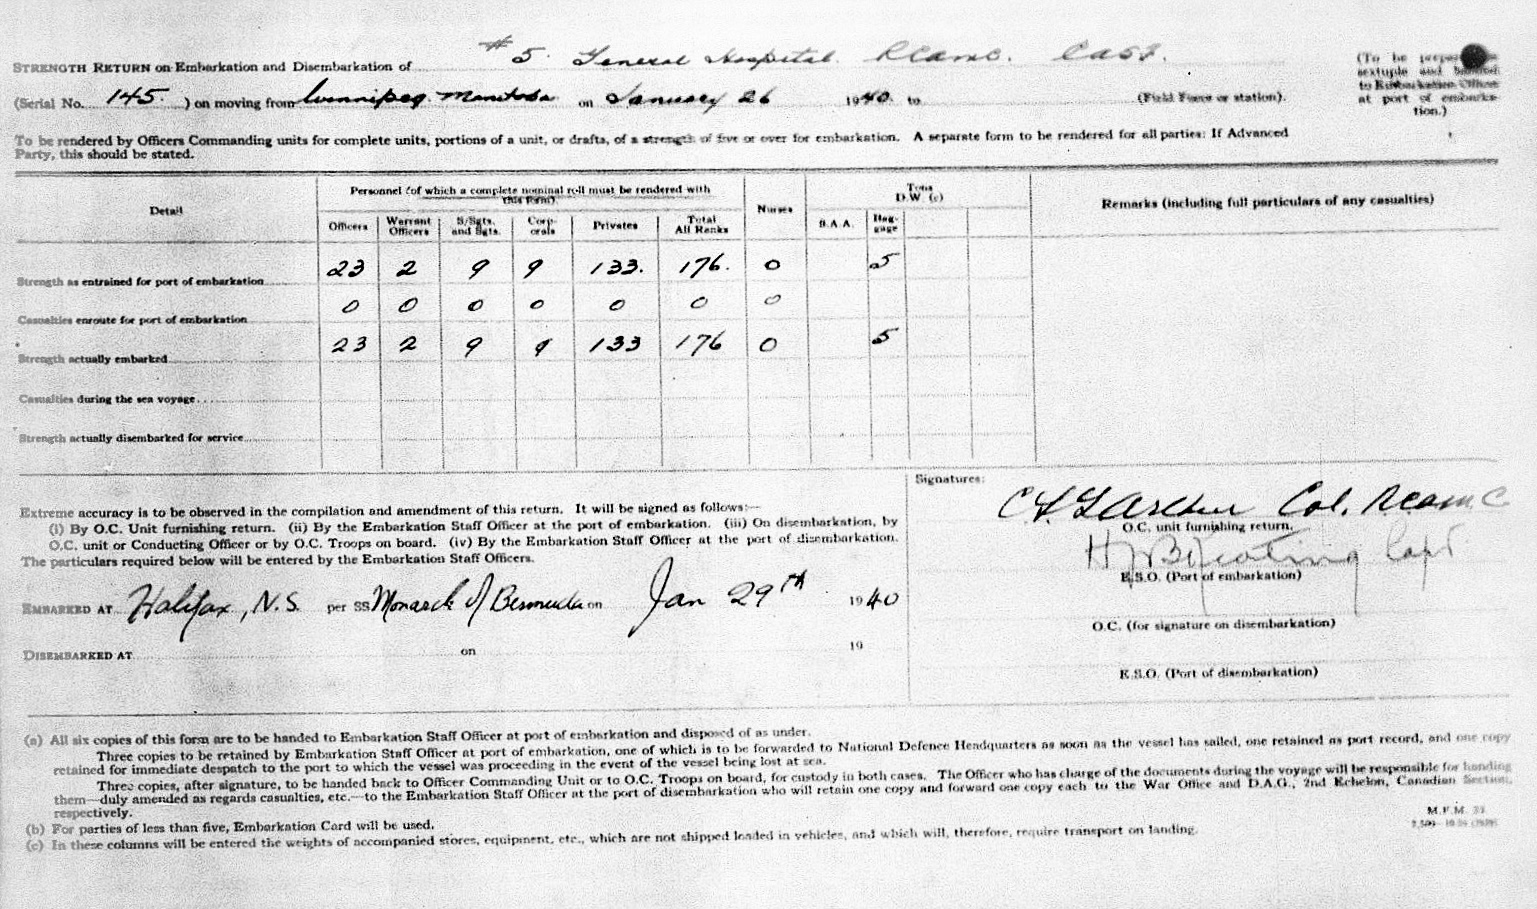 STRENGTH RETURN on Embarkation and Disembarkation of # 5 General Hospital RCAMC. CASF.
(To be prepared
sextuple and handed
to Embarkation Officer
at port of embarka-
tion.)
(Serial No. 145. ) on moving from Winnipeg. Manitoba on January 26 1940. to (Field Force or station).
To be rendered by Officers Commanding units for complete units, portions of a unit, or drafts, of a strength of five or over for embarkation. A separate form to be rendered for all parties: If Advanced
Party, this should be stated.
Detail
Personnel (of which a complete nominal roll must be rendered with
this form).
Nurses
Tons
D.W. (c)
Remarks (including full particulars of any casualties)
Officers Warrant Officers S/Sgts. and Sgts. Corp-orals Privates Total All Ranks S.A.A. Bag-gage
Strength as entrained for port of embarkation 23 2 9 9 133. 176. 0 5
Casualties enroute for port of embarkation 0 0 0 0 0 0 0
Strength actually embarked 23 2 9 9 133 176 0 5
Casualties during the sea voyage
Strength actually disembarked for service
Extreme accuracy is to be observed in the compilation and amendment of this return. It will be signed as follows:—
(i) By O.C. Unit furnishing return. (ii) By the Embarkation Staff Officer at the port of embarkation. (iii) On disembarkation, by
O.C. unit or Conducting Officer or by O.C. Troops on board. (iv) By the Embarkation Staff Officer at the port of disembarkation.
The particulars required below will be entered by the Embarkation Staff Officers.
EMBARKED AT Halifax, N.S. per SS Monarch of Bermuda on Jan 29th 1940
DISEMBARKED AT on 19
Signatures:
Col. RCAMC
O.C. unit furnishing return.
Keating Capt.
E.S.O. (Port of embarkation)
O.C. (for signature on disembarkation)
E.S.O. (Port of disembarkation)
(a) All six copies of this form are to be handed to Embarkation Staff Officer at port of embarkation and disposed of as under.
Three copies to be retained by Embarkation Staff Officer at port of embarkation, one of which is to be forwarded to National Defence Headquarters as soon as the vessel has sailed, one retained as port record, and one copy
retained for immediate despatch to the port to which the vessel was proceeding in the event of the vessel being lost at sea.
Three copies, after signature, to be handed back to Officer Commanding Unit or to O.C. Troops on board, for custody in both cases. The Officer who has charge of the documents during the voyage will be responsible for handing
them—duly amended as regards casualties, etc.—to the Embarkation Staff Officer at the port of disembarkation who will retain one copy and forward one copy each to the War Office and D.A.G., 2nd Echelon, Canadian Section,
respectively.
(b) For parties of less than five, Embarkation Card will be used.
(c) In these columns will be entered the weights of accompanied stores, equipment, etc., which are not shipped loaded in vehicles, and which will, therefore, require transport on landing.
M.F.M.